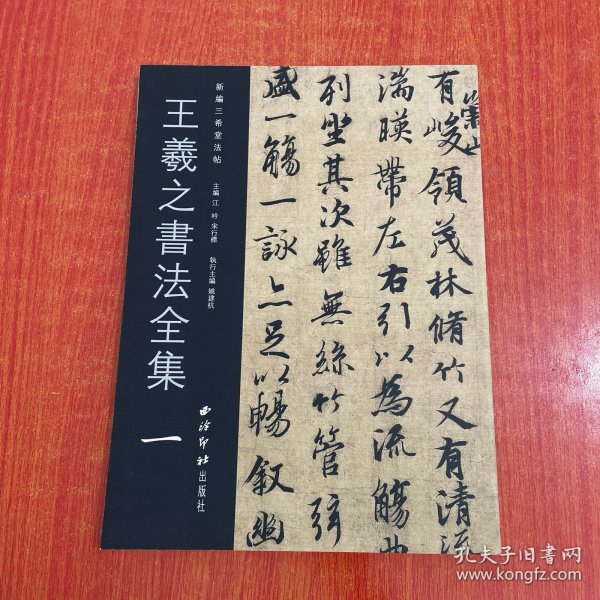 新編三希堂法帖
王羲之書法全集
一
主編 江吟 宋行標
執行主編 姚建杭
西泠印社出版社
有崇山峻領茂林脩竹又有清流
湍暎帶左右引以為流觴曲
列坐其次雖無絲竹管弦
盛一觴一詠亦足以暢叙幽
孔夫子旧书网
www.kongfz.com